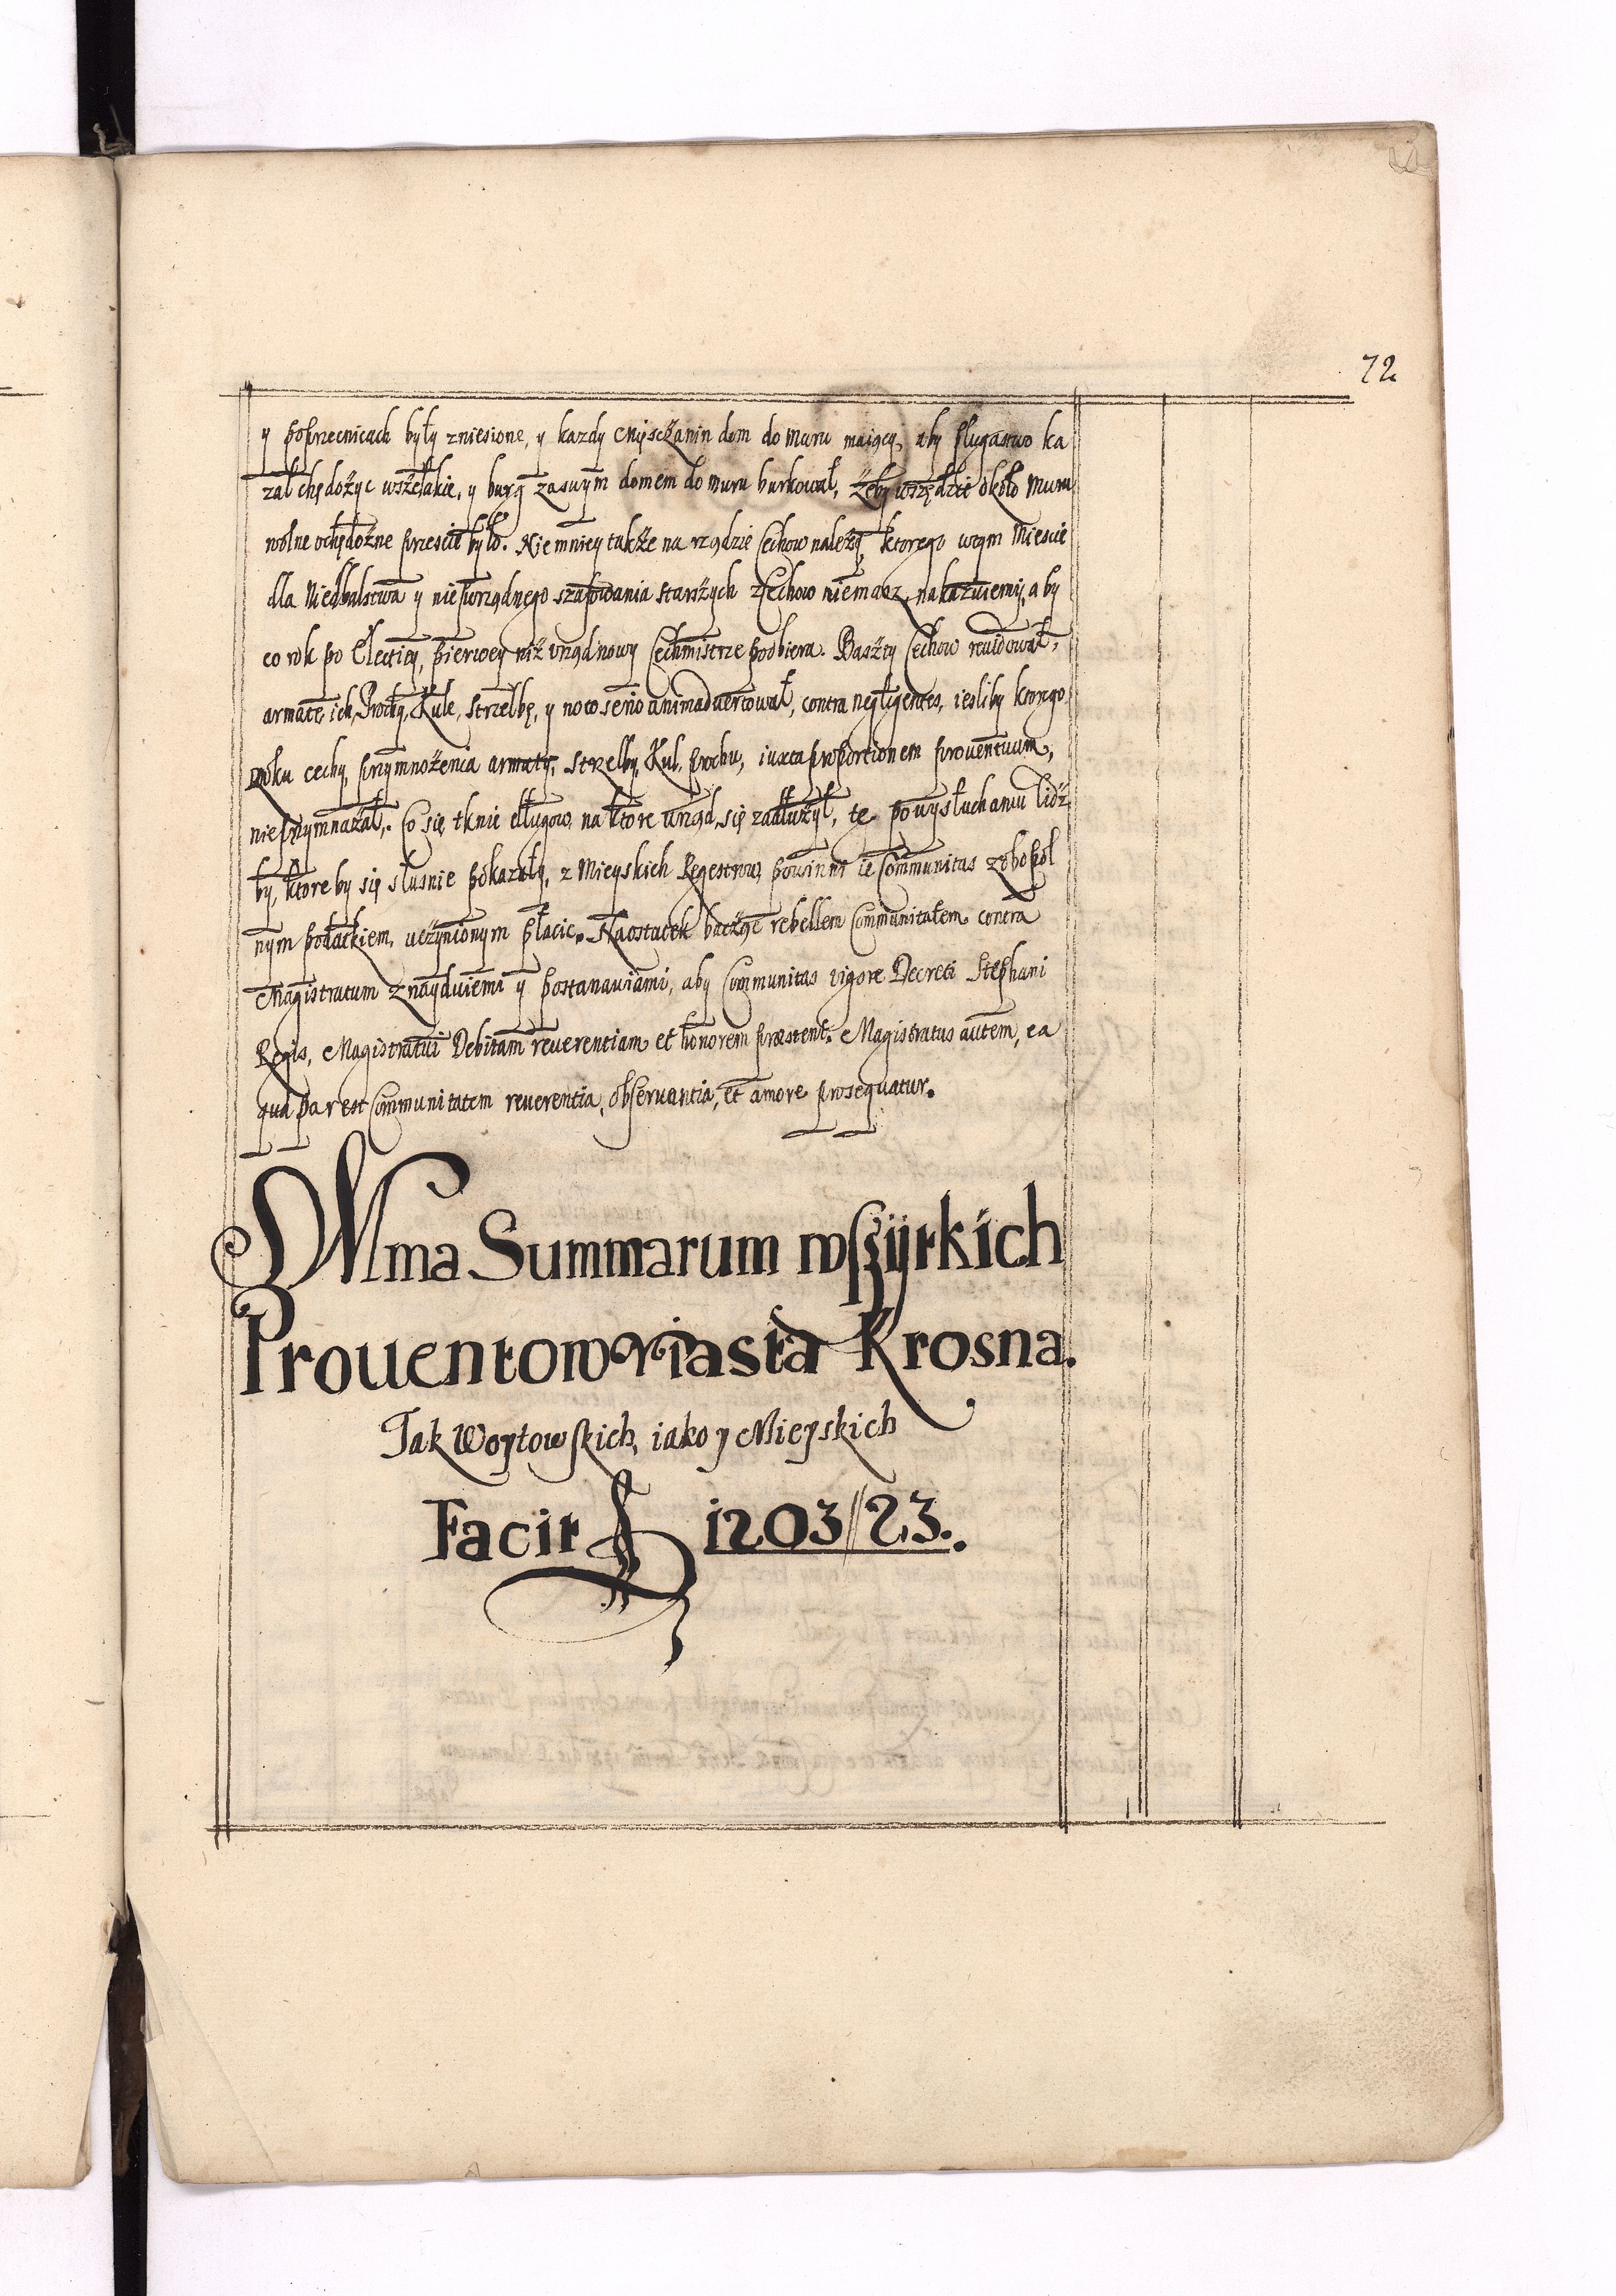 72
y poprzecnicach były zniesione, y kazdy Miysczanin dom do muru maiący, aby plugastwo ka
zał chędożyc wszelakie, y burg zaswym domem do muru burkował, żeby wszędzie około Muru
wolne ochędożne przeście było. Niemniey także na rządzie Cechow należy, ktorego wtym Mieście
dla Niedbalstwa y nieporządnego szafowania starszych z Cechow niemasz, nakazuiemy, aby
co rok po Electiey, pierwey niż vrząd nowy Cechmistrze podbiera. Baszty Cechow reuidował,
armatę ich, Prochy, Kule, Strzelbę, y noto serio animaduertował, contra negligentes, iesliby ktorego
roku cechy, przymnożenia armaty, strzelby, Kul, prochu, iuxta proportionem prouentuum,
nieprzymnażał. Co się tknie długow, na ktore vrząd się zadłużył, te powysłuchaniu lidź
by, ktoreby się słusnie pokazały, z Mieyskich Regestrow, powinni ie Communitas zobopol
nym podatkiem, vczynionym płacic. Naostatek bacząc rebellem Communitatem contra
Magistratum znayduiemi y postanawiami, aby Communitas vigore Decreti Stephani
Regis, Magistratui Debitam reuerentiam et honorem præstent. Magistratus autem, ea
qua par est Communitatem reuerentia, obseruantia, et amore prosequatur.
SVMma Summarum wszÿtkich
Prouentow Miasta Krosna.
Tak Woytowskich, iako y Mieyskich
Facit fl 1203//23.